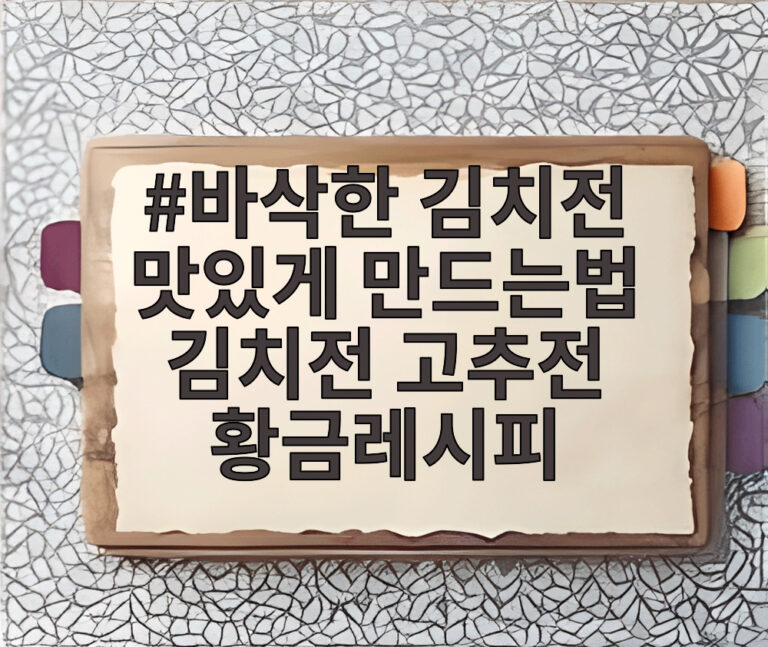 #바삭한 김치전
맛있게 만드는법
김치전 고추전
황금레시피